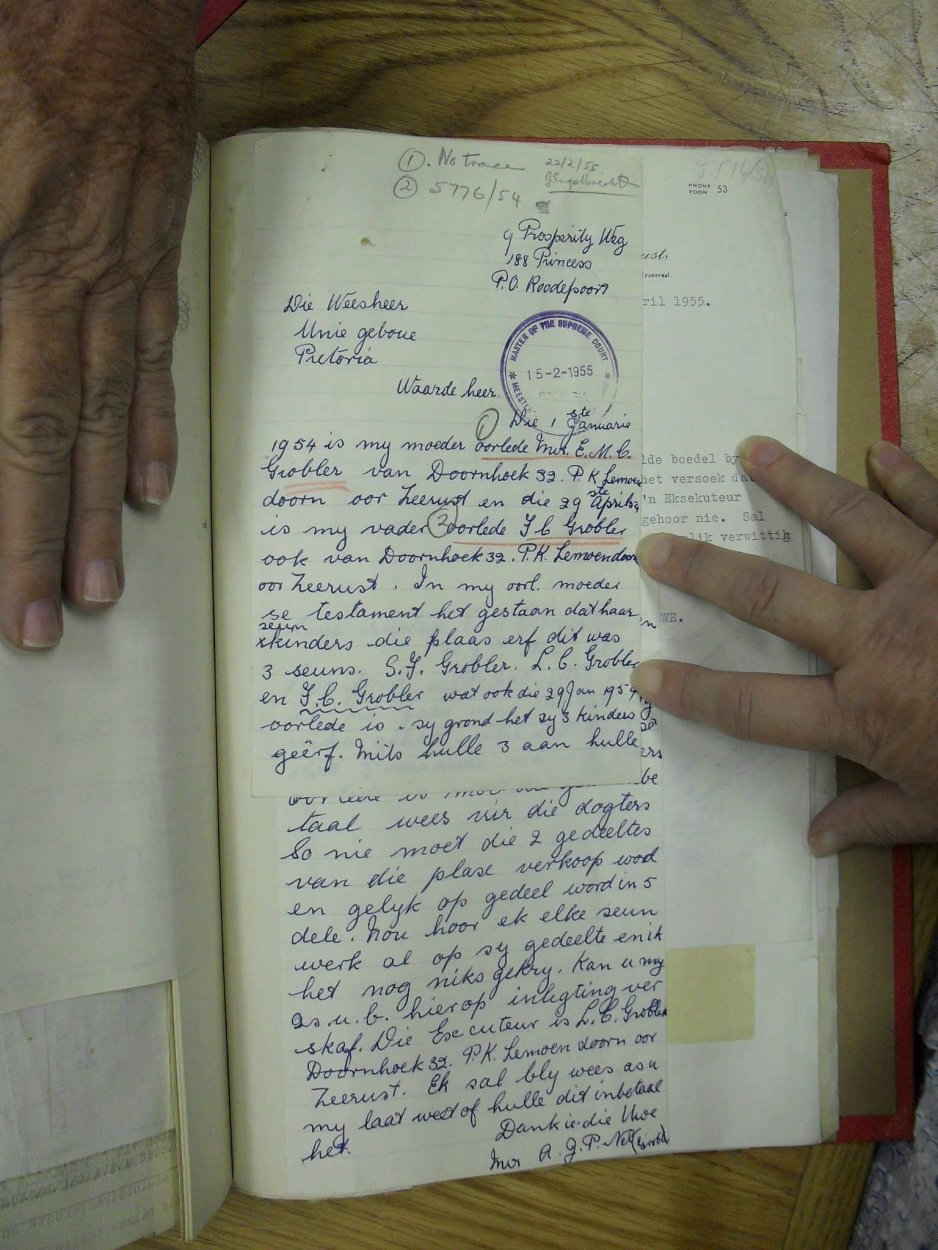 1. No trace 22/2/55
J Engelbrecht
2 5776/54
5776/54
PHONE
FOON 53
9 Prosperity Weg
188 Princess
P.O. Roodepoort
ril 1955.
Die Weesheer
Unie geboue
Pretoria
MASTER OF THE SUPREME COURT
15-2-1955
MEESTER
Waarde heer.
1 Die 1ste Januarie
1954 is my moeder oorlede Mev. E.M.C.
Grobler van Doornhoek 32. P.K Lemoen
doorn oor Zeerust en die 29ste April
is my vader 2 oorlede I C Grobler
ook van Doornhoek 32. P.K. Lemoendoorn
oor Zeerust. In my oorl. moeder
se testament het gestaan dat haar
seun
xkinders die plaas erf dit was
3 seuns. S.J. Grobler. L.C. Grobler
en I.C. Grobler wat ook die 29 Jan 1954
oorlede is. sy grond het sy 3 kinders
geërf. Mits hulle 3 aan hulle
lde boedel by
het versoek dat
'n Eksekuteur
gehoor nie. Sal
lik verwittig
WE.
be
taal wees vir die dogters
So nie moet die 2 gedeeltes
van die plase verkoop word
en gelyk op gedeel word in 5
dele. Nou hoor ek elke seun
werk al op sy gedeelte en ik
het nog niks gekry. Kan u my
as.u.b. hierop inligting ver
skaf. Die Executeur is L.C. Grobler
Doornhoek 32. P.K. Lemoen doorn oor
Zeerust. Ek sal bly wees as u
my laat weet of hulle dit inbetaal
het. Dankie die Uwe
Mev A. J. P. Nel (Grobler